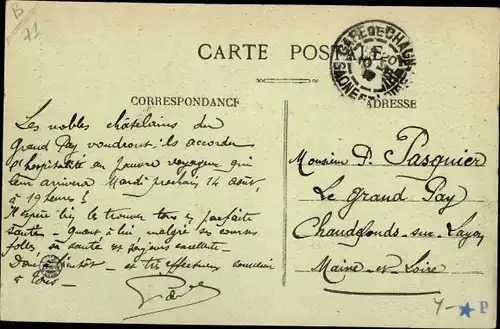 B
71
CARTE POSTALE
GARE DE CHAGNY
SAONE-ET-LOIRE
CORRESPONDANCE
ADRESSE
Les nobles châtelains du
Grand Pay voudront-ils accorder
l'hospitalité au pauvre voyageur qui
leur arrivera Mardi prochain 14 août,
à 19 heures !
Il espère bien le trouver tous en parfaite
santé – Quant à lui, malgré ses courses
folles, sa santé est toujours excellente –
Donc à bientôt – et très affectueux souvenir
à tous –
Monsieur P. Pasquier
Le Grand Pay
Chaudefonds-sur-Layon
Maine-et-Loire
P